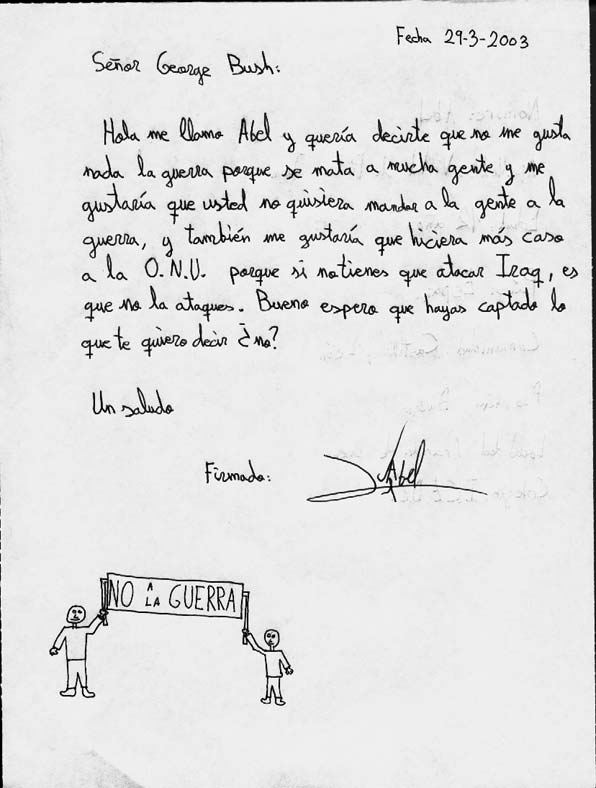 Fecha 29-3-2003
Señor George Bush:
Hola me llamo Abel y quería decirte que no me gusta
nada la guerra porque se mata a mucha gente y me
gustaría que usted no quisiera mandar a la gente a la
guerra, y también me gustaría que hiciera más caso
a la O.N.U. porque si no tienes que atacar Iraq, es
que no la ataques. Bueno espero que hayas captado lo
que te quiero decir ¿no?
Un saludo
Firmado: Abel
NO A LA GUERRA